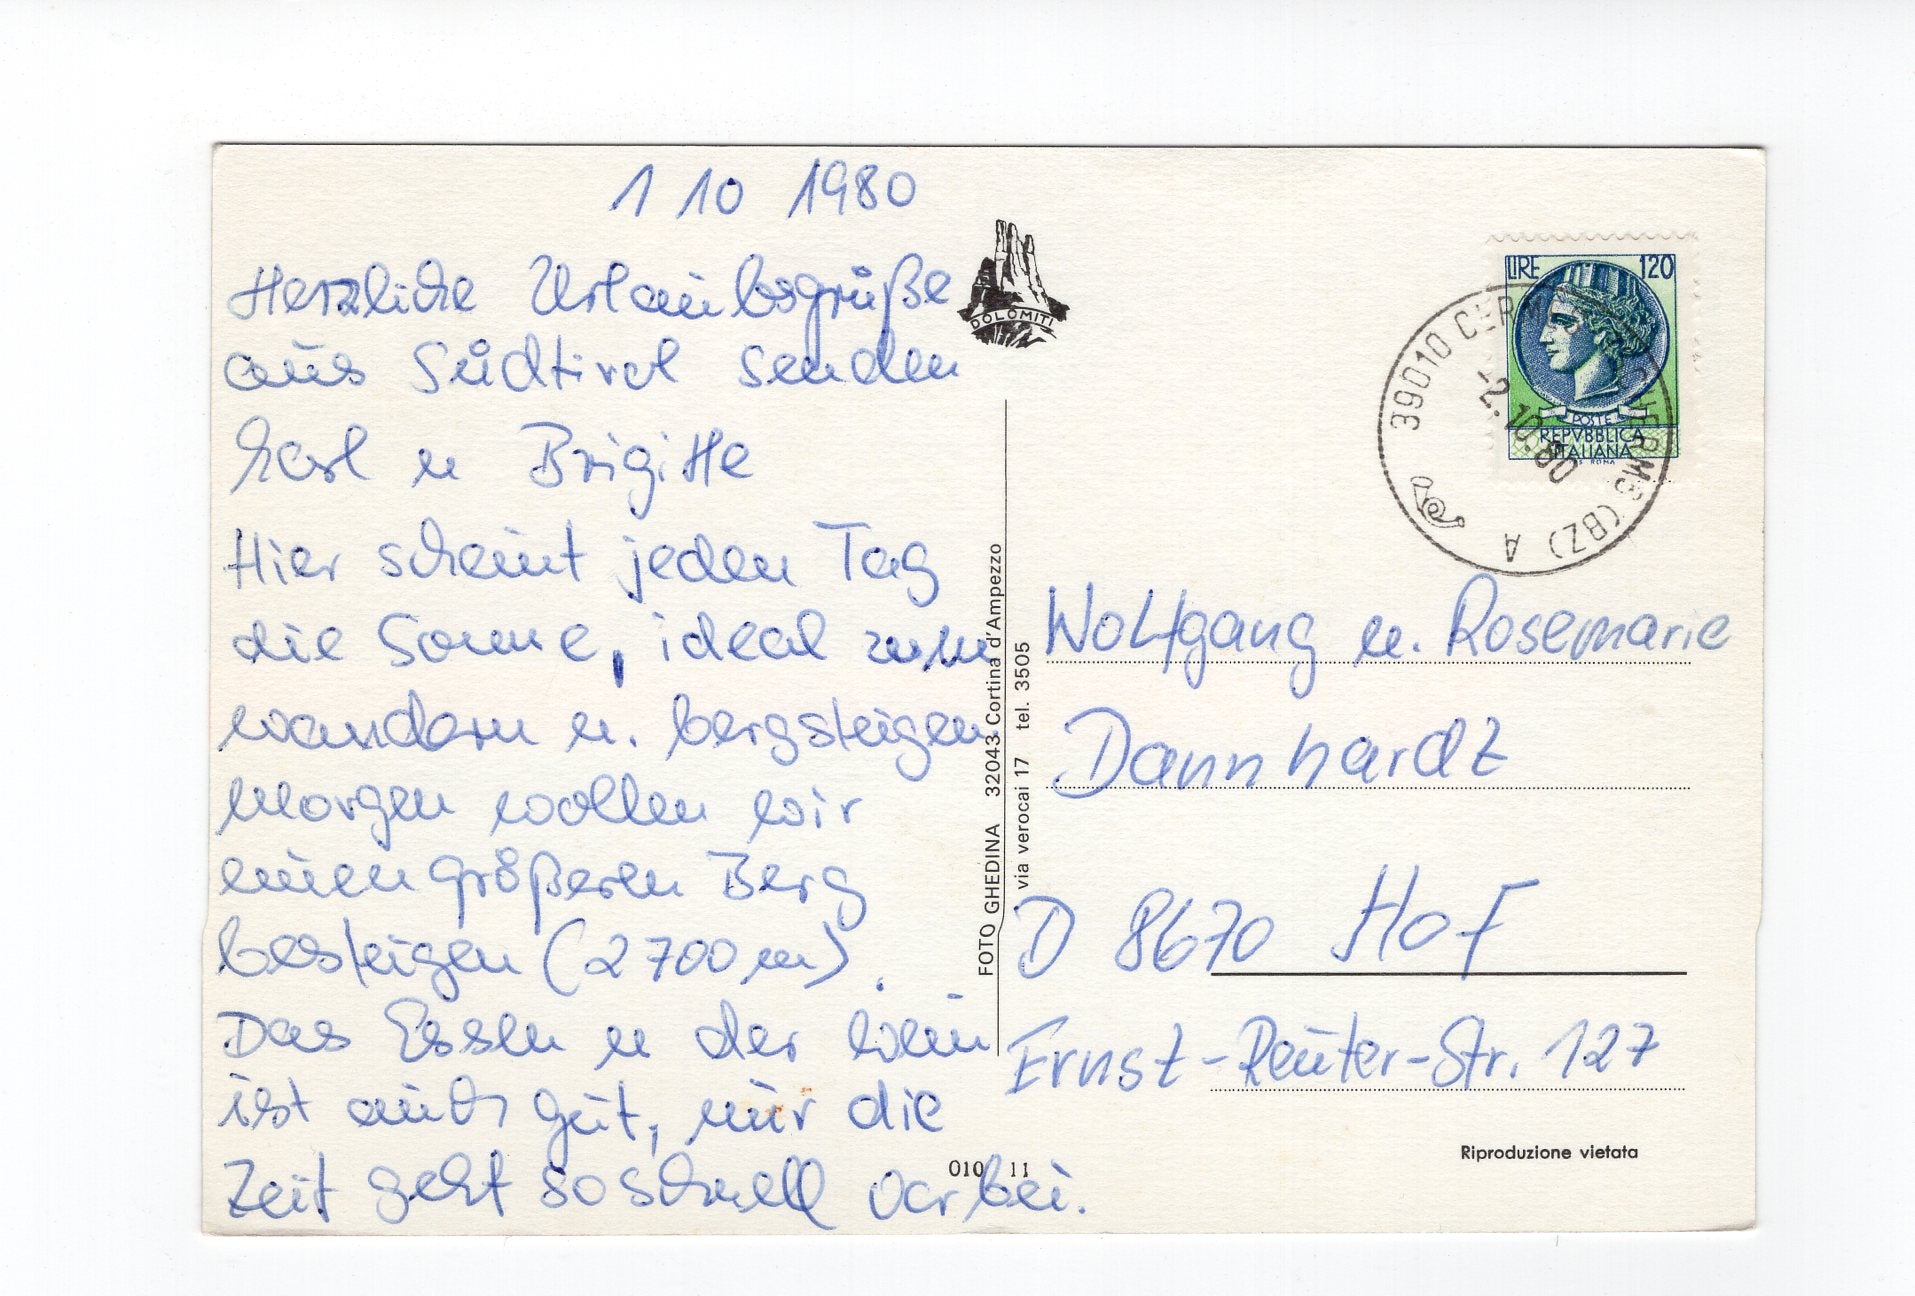 1 10 1980
Herzliche Urlaubsgrüße
aus Südtirol senden
Karl u Brigitte
Hier scheint jeden Tag
die Sonne, ideal zum
wandern u. bergsteigen
Morgen wollen wir
einen größeren Berg
besteigen (2700 m).
Das Essen u der Wein
ist auch gut, nur die
Zeit geht so schnell vorbei.
DOLOMITI
FOTO GHEDINA 32043 Cortina d'Ampezzo
via verocai 17 tel. 3505
010 11
LIRE 120
POSTE
REPVBBLICA
ITALIANA
ROMA
39010 CERM
(BZ) A
-2.10.80
Wolfgang u. Rosemarie
Dannhardt
D 8670 Hof
Ernst-Reuter-Str. 127
Riproduzione vietata